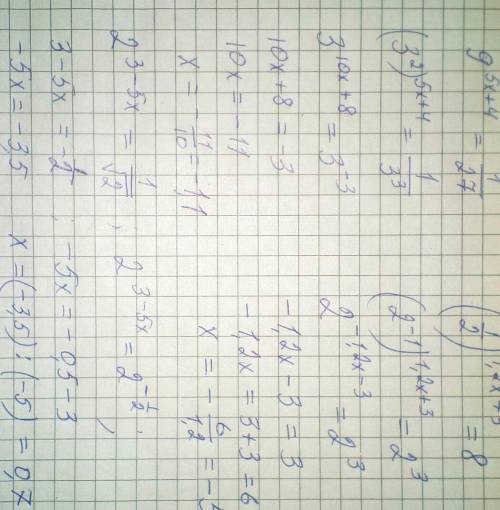 9^(5x+4) = 1/27
(3^2)^(5x+4) = 1/3^3
3^(10x+8) = 3^(-3)
10x+8 = -3
10x = -11
x = -11/10 = -1,1
(1/2)^(1,2x+3) = 8
(2^(-1))^(1,2x+3) = 2^3
2^(-1,2x-3) = 2^3
-1,2x-3 = 3
-1,2x = 3+3 = 6
x = -6/1,2 = -
2^(3-5x) = 1/√2 ; 2^(3-5x) = 2^(-1/2) ;
3-5x = -1/2 ; -5x = -0,5-3
-5x = -3,5 x = (-3,5):(-5) = 0,7